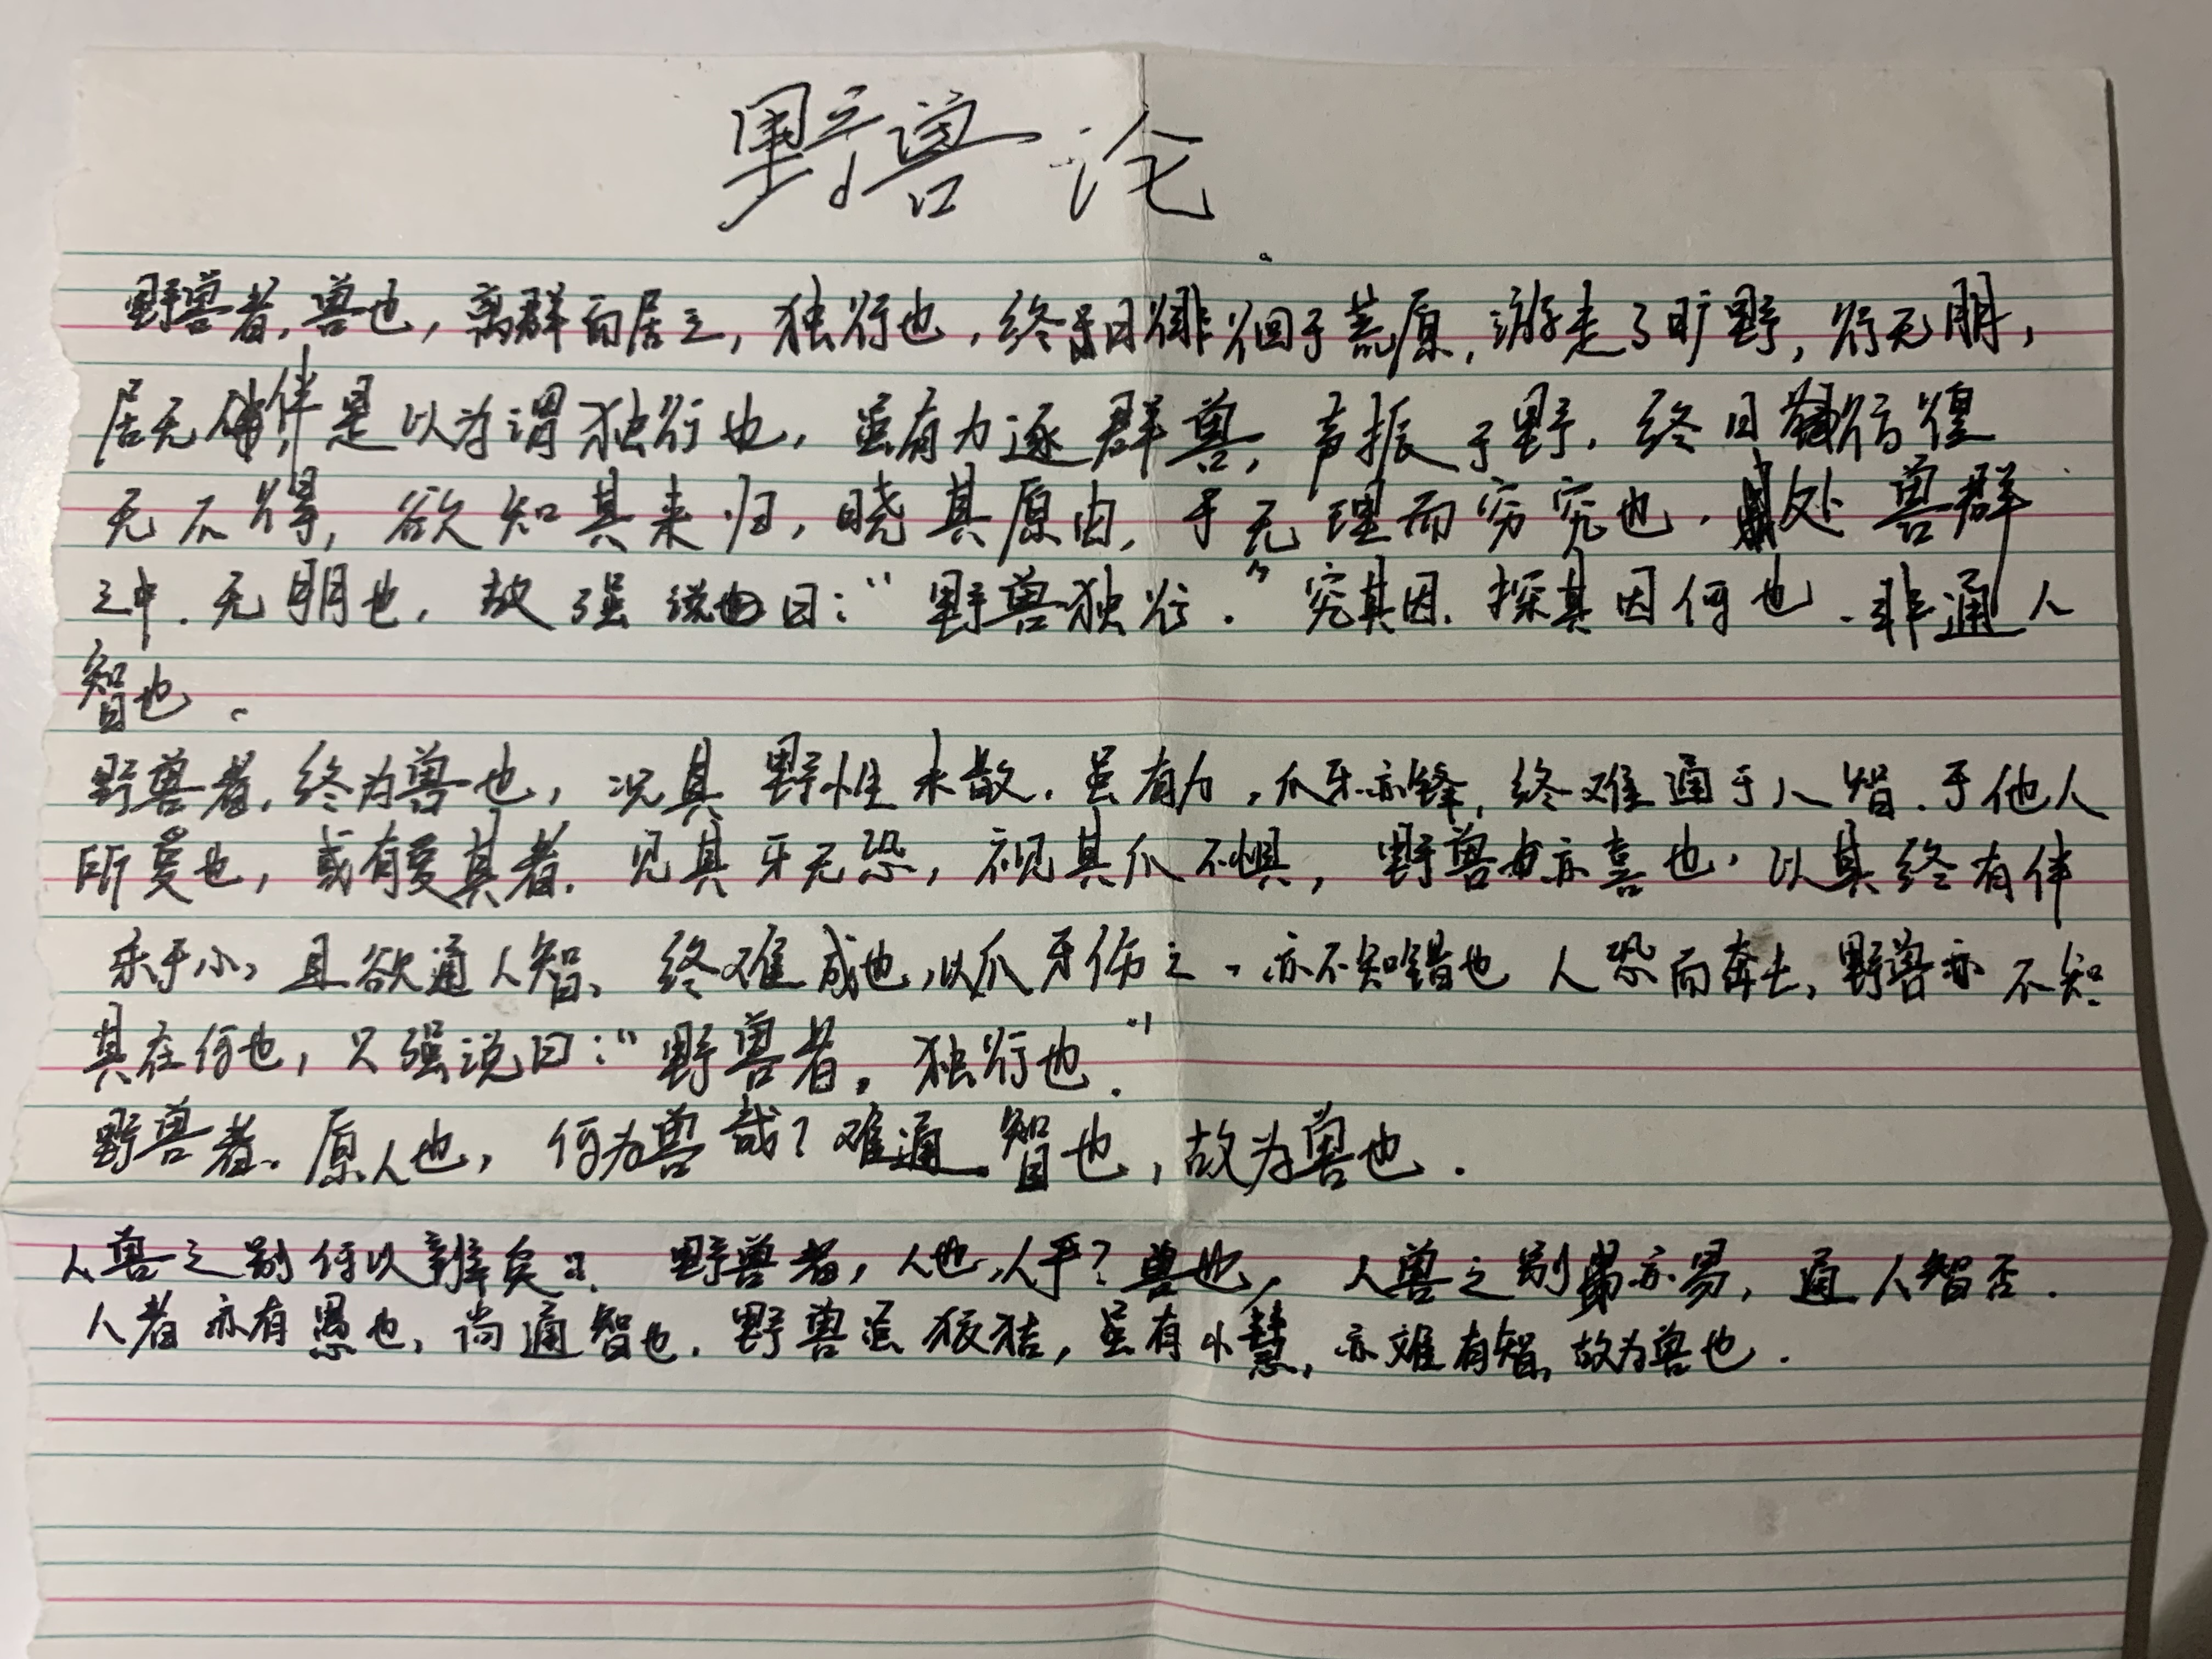 野兽论
野兽者,兽也,离群而居之,独行也,终日徘徊于荒原,游走于旷野,行无朋,
居无伴是以为谓独行也,虽有力逐群兽,声振于野,终日彷徨
无不得,欲知其来归,晓其原由,于无理而穷究也,处兽群
之中.无朋也,故强说曰:“野兽独行.”究其因.探其因何也.非通人
智也.
野兽者,终为兽也,况其野性未散.虽有力,爪牙亦锋,终难通于人智.于他人
所爱也,或有爱其者.见其牙无恐,视其爪不惧,野兽亦喜也,以其终有伴
乐于心,且欲通人智、终难成也,以爪牙伤之,亦不知错也 人恐而奔走,野兽亦不知
其在何也,只强说曰:“野兽者,独行也.”
野兽者.原人也,何为兽哉?难通智也,故为兽也.
人兽之别何以辨矣?.野兽者,人也,人乎?兽也,人兽之别亦易,通人智否.
人者亦有愚也,尚通智也.野兽虽狡猾,虽有小慧,亦难有智,故为兽也.